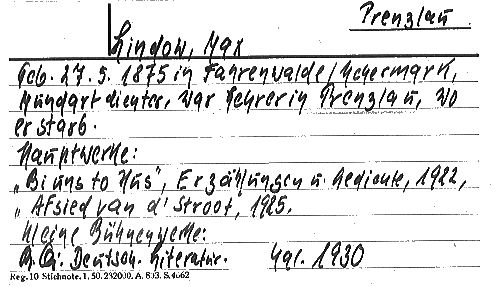 Prenzlau
Lindow, Max
Geb. 27. 5. 1875 in Fahrenwalde/Uckermark,
Mundartdichter, war Lehrer in Prenzlau, wo
er starb.
Hauptwerke:
„Bi uns to Hus", Erzählungen u. Gedichte, 1922,
„Afsied van d' Stroot", 1925.
Kleine Bühnenwerke:
Deutsch. Literatur. 1930
Reg. 10 Stichnote. 1, 50. 232000. A. 803. S. 4662